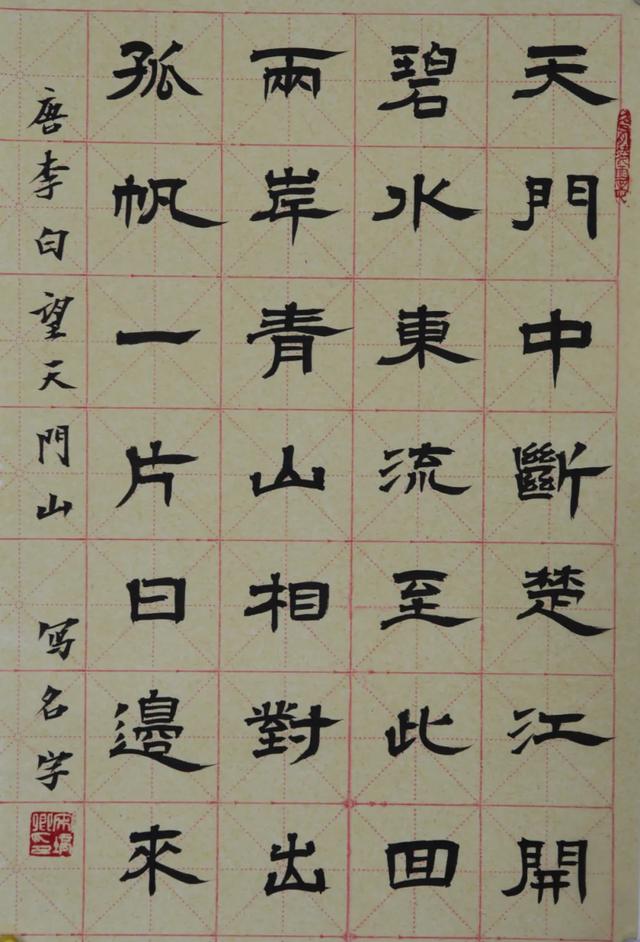 天門中斷楚江開
碧水東流至此回
兩岸青山相對出
孤帆一片日邊來
唐李白望天門山 写名字